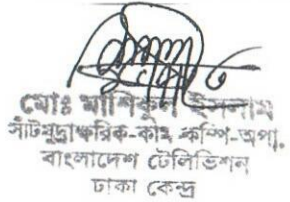 মোঃ মাশিকুল ইসলাম
সাঁটমুদ্রাক্ষরিক-কাম কম্পি-অপা.
বাংলাদেশ টেলিভিশন
ঢাকা কেন্দ্র